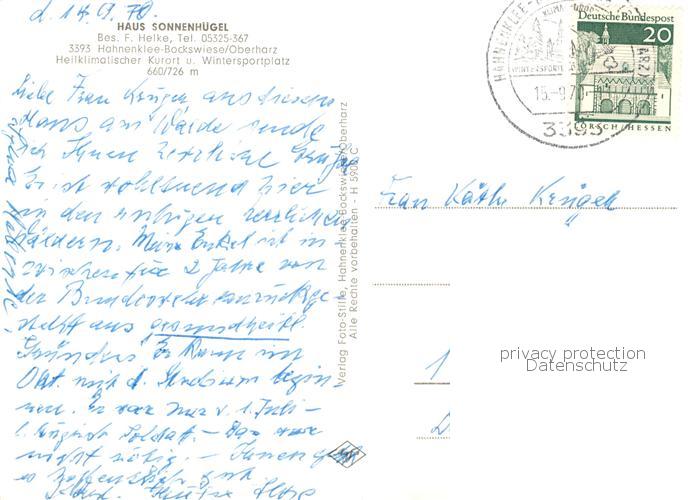 d. 14.9.70.
HAUS SONNENHÜGEL
Bes. F. Helke, Tel. 05325-367
3393 Hahnenklee-Bockswiese/Oberharz
Heilklimatischer Kurort u. Wintersportplatz
660/726 m
Liebe Frau Krüger aus diesem
Haus am Walde sende
ich Ihnen herzliche Grüße
Es ist wohltuend hier
in den ruhigen herrlichen
Wäldern. Mein Enkel ist in-
zwischen für 2 Jahre von
der Bundeswehr zurückge-
stellt aus gesundheitl.
Gründen. Er kann im
Okt. mit d. Studium begin-
nen. Er war nur v. 1. Juli -
August Soldat. - Das war
nicht nötig. - Ihnen geht
es hoffentlich gut
Verlag Foto-Stille, Hahnenklee-Bockswiese/Oberharz
Alle Rechte vorbehalten - H 590 C
Deutsche Bundespost
20
LORSCH/HESSEN
HAHNENKLEE-
WINTERSPORT
15.-9.70
3393
Frau Käthe Krüger
1
privacy protection
Datenschutz